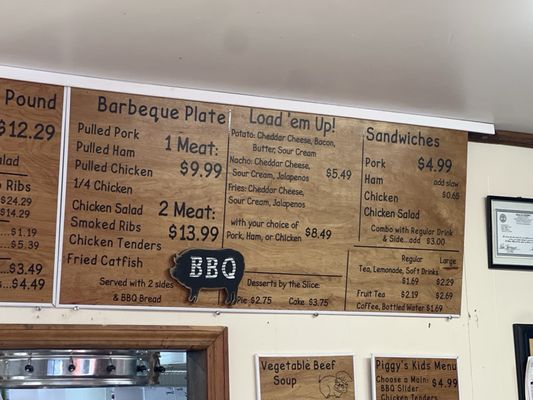 Pound
$12.29
salad
Ribs
$24.29
$14.29
...$1.19
...$5.39
...$3.49
...$4.49
Barbeque Plate
Pulled Pork
Pulled Ham
Pulled Chicken
1/4 Chicken
1 Meat:
$9.99
Chicken Salad
Smoked Ribs
Chicken Tenders
Fried Catfish
2 Meat:
$13.99
Served with 2 sides
& BBQ Bread
BBQ
Load 'em Up!
Potato: Cheddar Cheese, Bacon,
Butter, Sour Cream
Nacho: Cheddar Cheese,
Sour Cream, Jalapenos
Fries: Cheddar Cheese,
Sour Cream, Jalapenos
$5.49
with your choice of
Pork, Ham, or Chicken $8.49
Desserts by the Slice
Pie $2.75 Cake $3.75
Sandwiches
Pork $4.99
Ham add slaw
Chicken $0.65
Chicken Salad
Combo with Regular Drink
& Side...add $3.00
Regular Large
Tea, Lemonade, Soft Drinks
$1.69 $2.29
Fruit Tea $2.19 $2.69
Coffee, Bottled Water $1.69
Vegetable Beef
Soup
Piggy's Kids Menu
Choose a Main: $4.99
BBQ Slider
Chicken Tender